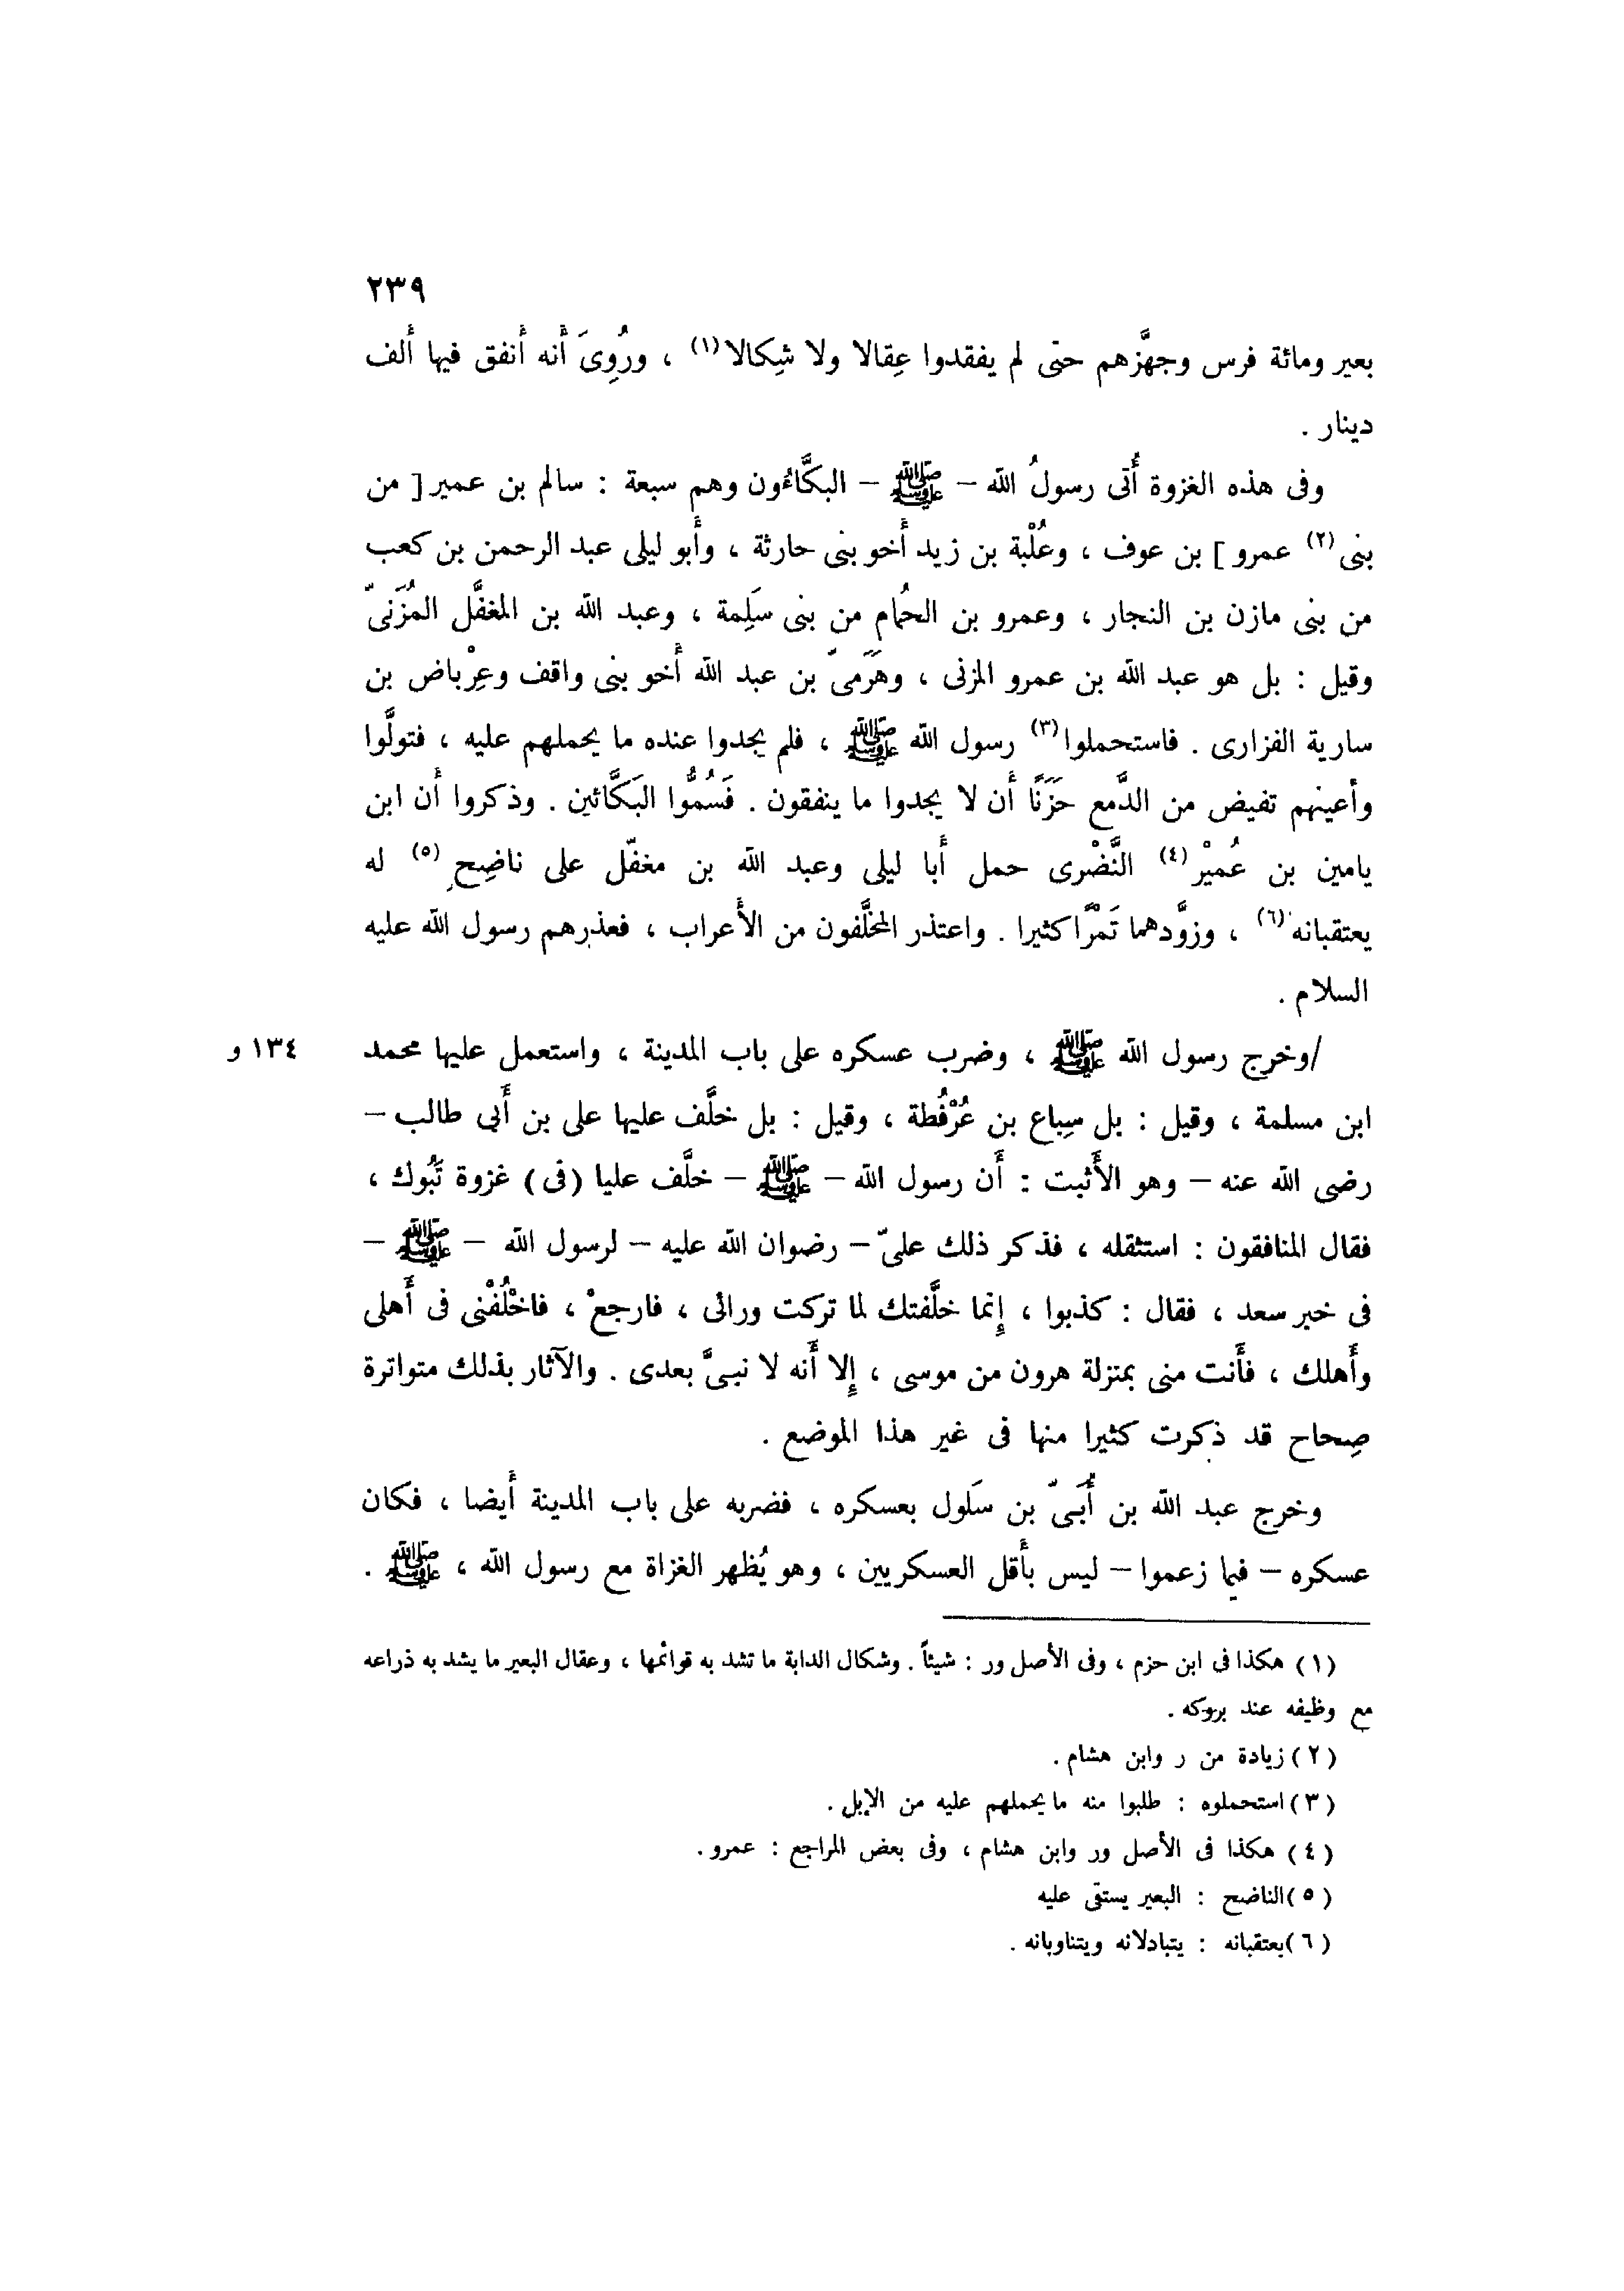 ٢٣٩
بعير ومائة فرس وجهَّزهم حتى لم يفقدوا عِقالا ولا شِكالا(١) ، ورُوِىَ أَنه أَنفق فيها أَلف
دينار .
وفى هذه الغزوة أُتى رسولُ الله – ﷺ – البكَّاءُون وهم سبعة : سالم بن عمير [ من
بنى(٢) عمرو ] بن عوف ، وعُلْبة بن زيد أَخو بنى حارثة ، وأَبو ليلى عبد الرحمن بن كعب
من بنى مازن بن النجار ، وعمرو بن الحُمام من بنى سَلِمة ، وعبد الله بن المغفَّل المُزَنىّ
وقيل : بل هو عبد الله بن عمرو المزنى ، وهَرَمىّ بن عبد الله أَخو بنى واقف وعِرْباض بن
سارية الفزارى . فاستحملوا(٣) رسول الله ﷺ ، فلم يجدوا عنده ما يحملهم عليه ، فتولَّوا
وأعينهم تفيض من الدَّمع حَزَنًا أَن لا يجدوا ما ينفقون . فَسُمُّوا البَكَّائين . وذكروا أَن ابن
يامين بن عُميْر(٤) النَّضْرى حمل أَبا ليلى وعبد الله بن مغفّل على ناضِح(٥) له
يعتقبانه(٦) ، وزوَّدهما تَمْرًا كثيرا . واعتذر المخلَّفون من الأَعراب ، فعذرهم رسول الله عليه
السلام .
/وخرج رسول الله ﷺ ، وضرب عسكره على باب المدينة ، واستعمل عليها محمد ١٣٤ و
ابن مسلمة ، وقيل : بل سِباع بن عُرْفُطة ، وقيل : بل خلَّف عليها على بن أَبى طالب –
رضى الله عنه – وهو الأَثبت : أَن رسول الله – ﷺ – خلَّف عليا (فى) غزوة تَبُوك ،
فقال المنافقون : استثقله ، فذكر ذلك علىّ – رضوان الله عليه – لرسول الله – ﷺ –
فى خبر سعد ، فقال : كذبوا ، إِنما خلَّفتك لما تركت ورائى ، فارجعْ ، فاخْلُفْنى فى أَهلى
وأَهلك ، فأَنت منى بمنزلة هرون من موسى ، إِلا أَنه لا نبىَّ بعدى . والآثار بذلك متواترة
صِحاح قد ذكرت كثيرا منها فى غير هذا الموضع .
وخرج عبد الله بن أُبَىّ بن سَلول بعسكره ، فضربه على باب المدينة أَيضا ، فكان
عسكره – فيما زعموا – ليس بأَقل العسكريين ، وهو يُظهر الغزاة مع رسول الله ، ﷺ .
(١) هكذا فى ابن حزم ، وفى الأصل ور : شيئاً . وشكال الدابة ما تشد به قوائمها ، وعقال البعير ما يشد به ذراعه
مع وظيفه عند بروكه .
(٢) زيادة من ر وابن هشام .
(٣) استحملوه : طلبوا منه ما يحملهم عليه من الإبل .
(٤) هكذا فى الأصل ور وابن هشام ، وفى بعض المراجع : عمرو .
(٥) الناضح : البعير يستقى عليه
(٦) يعتقبانه : يتبادلانه ويتناوبانه .